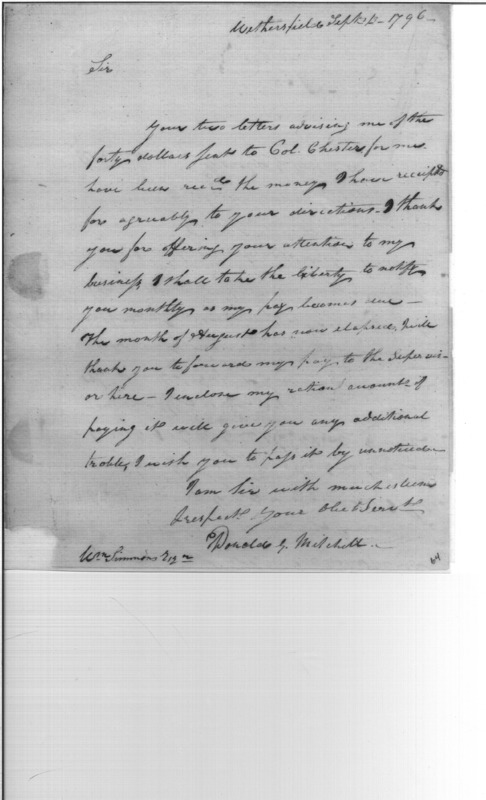 Wethersfield Sept. 1796
Sir
Your two letters advising me of the
forty dollars sent to Col. Chester for me
have been recd the money I have receipted
for agreuably to your directions - I thank
you for offering your attention to my
business I shall take the liberty to notify
you monthly as my pay becomes due -
The month of August has now elapsed, I will
thank you to forward my pay to the supervis-
or here - I enclose my ration accounts if
paying it will give you any additional
troble, I wish you to pass it by unnoticed
I am Sir with much esteem
& respect Your Obt Servt
Donald G. Mitchell
Wm Simmons Esqr
64